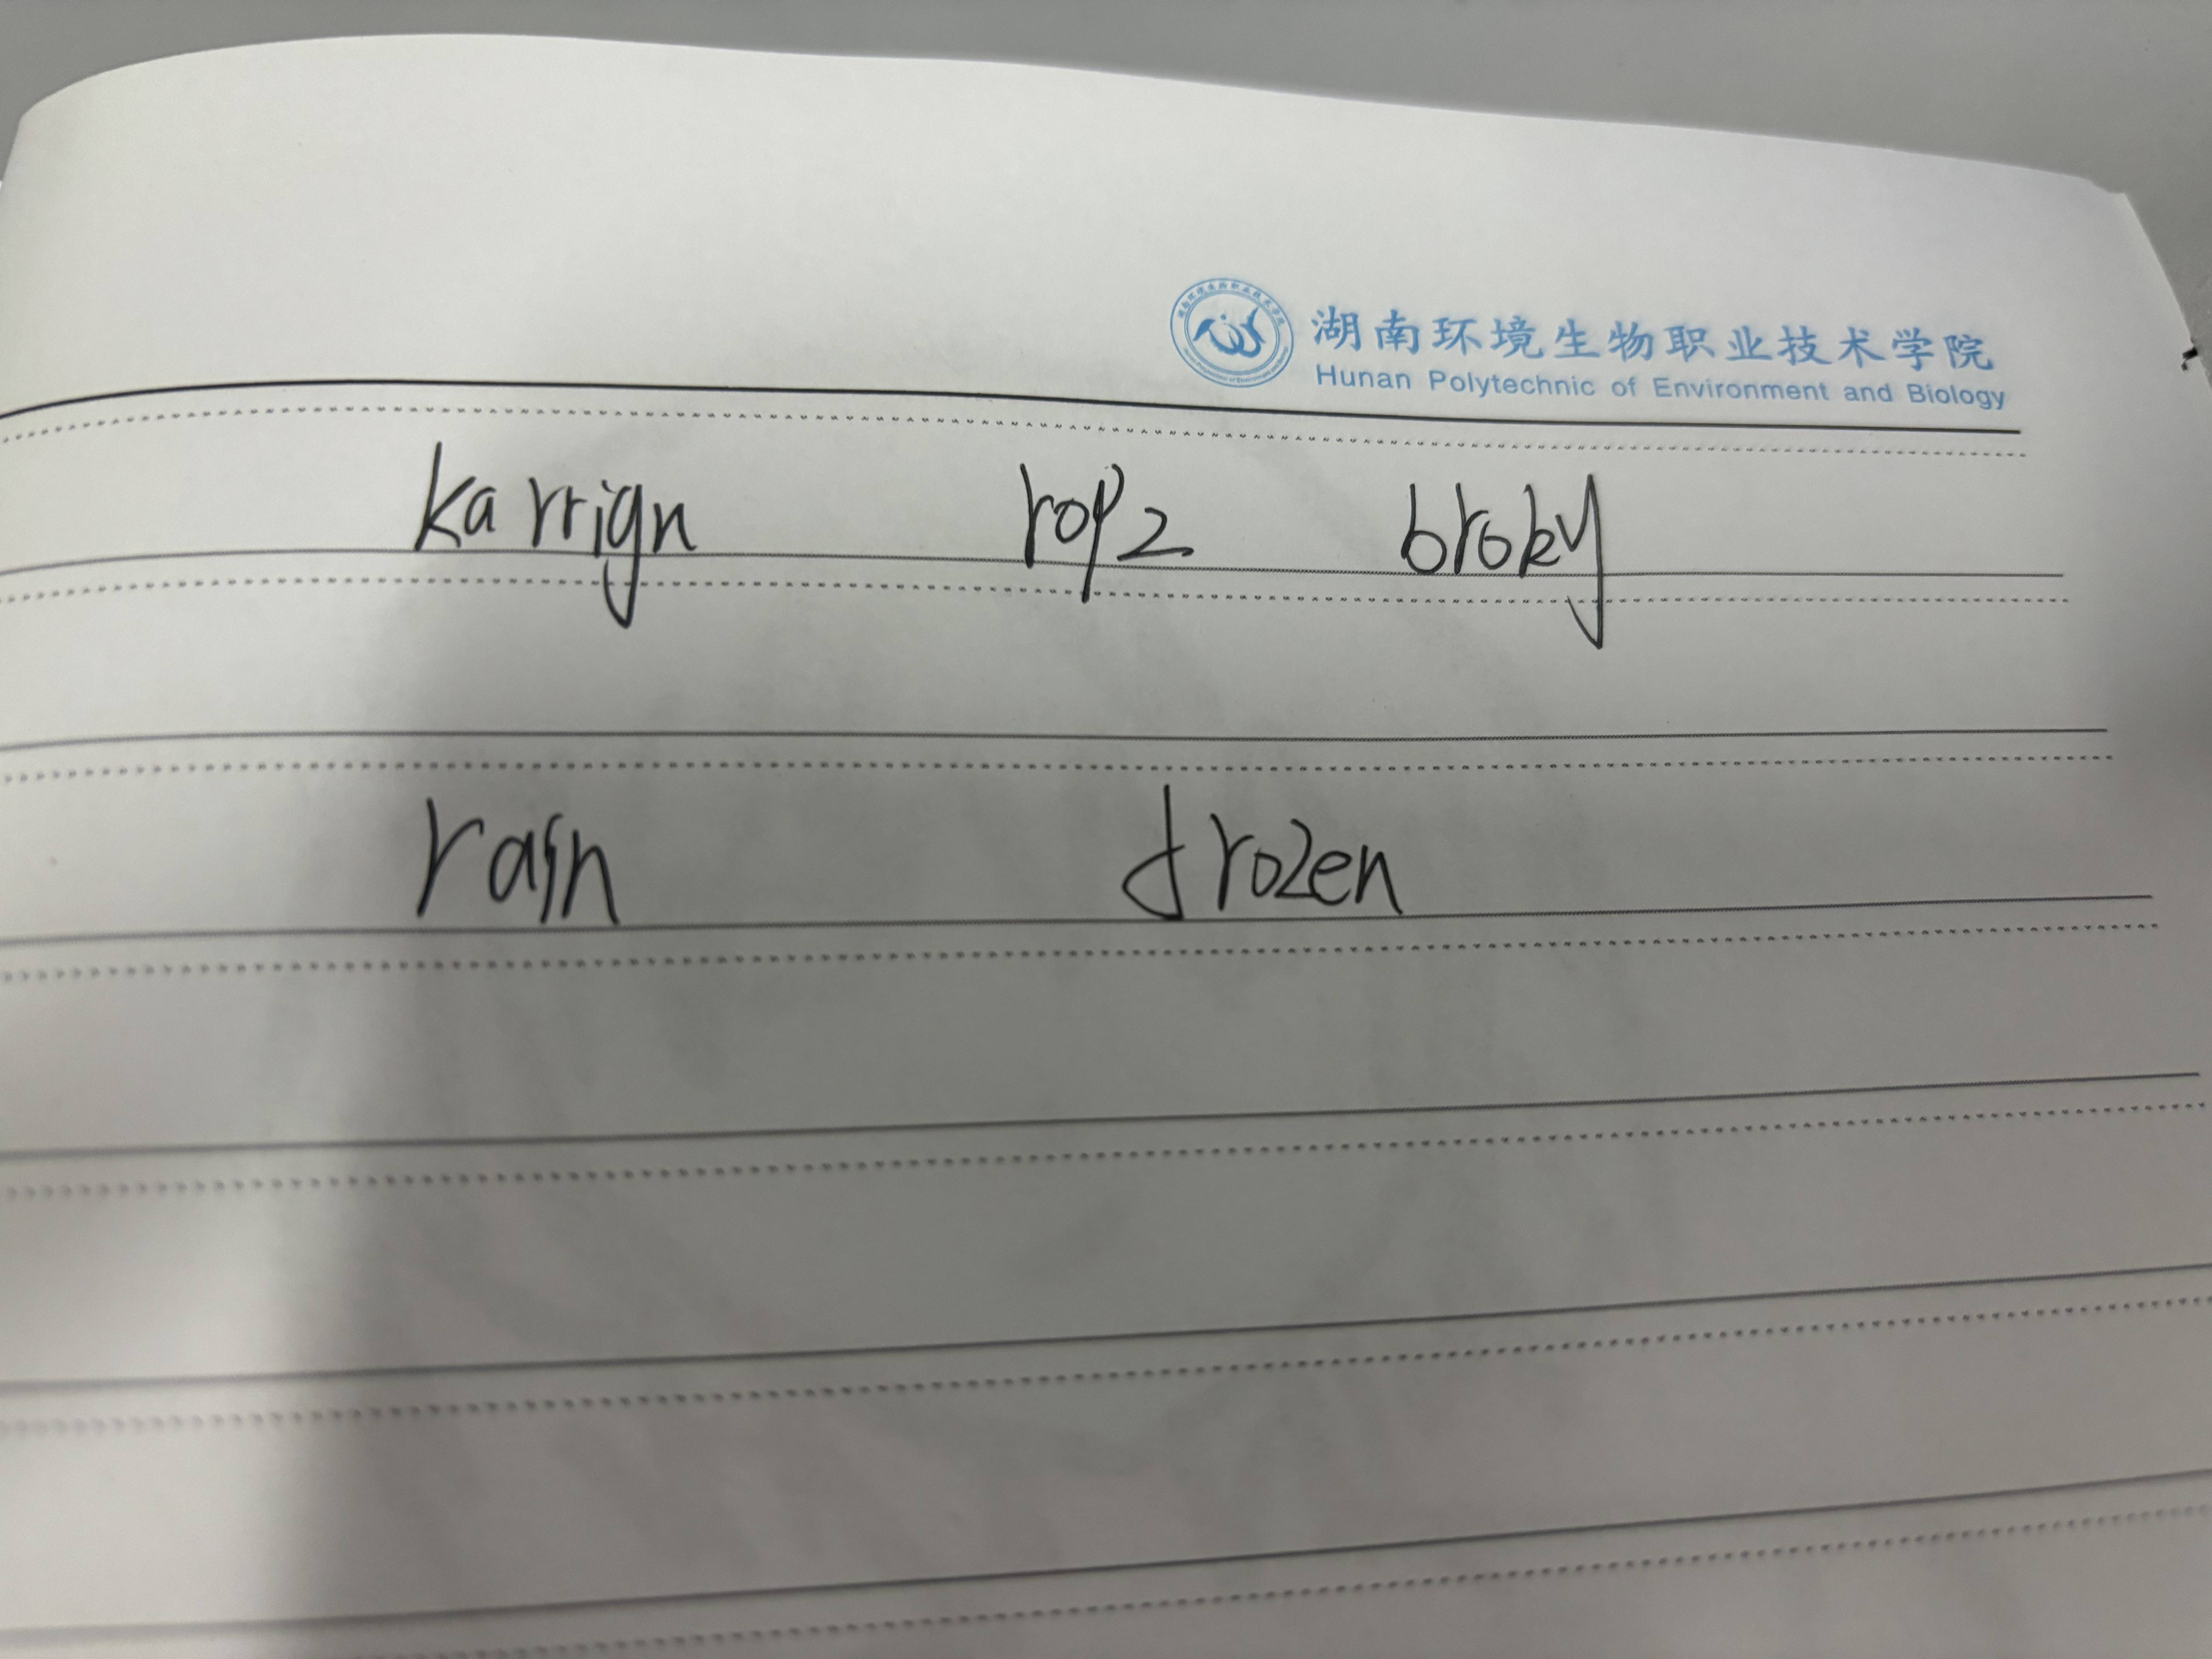 湖南环境生物职业技术学院
Hunan Polytechnic of Environment and Biology
karrign rop2 broky
rain frozen